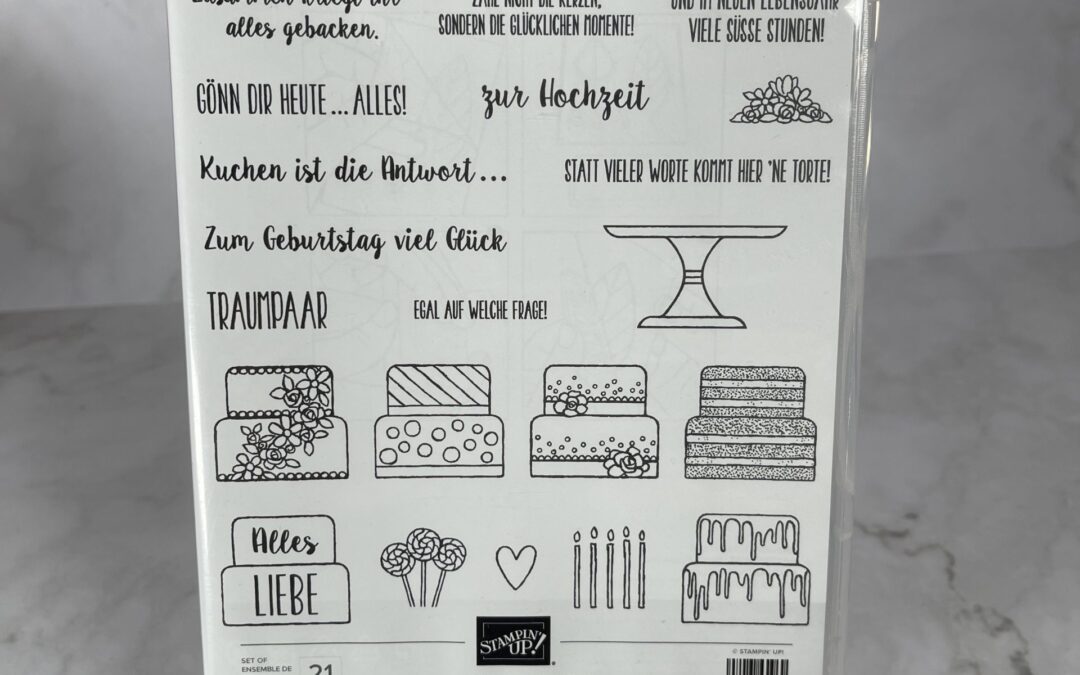 alles gebacken.
ZÄHL NICHT DIE KERZEN,
SONDERN DIE GLÜCKLICHEN MOMENTE!
UND IM NEUEN LEBENSJAHR
VIELE SÜSSE STUNDEN!
GÖNN DIR HEUTE...ALLES!
zur Hochzeit
Kuchen ist die Antwort...
STATT VIELER WORTE KOMMT HIER 'NE TORTE!
Zum Geburtstag viel Glück
TRAUMPAAR
EGAL AUF WELCHE FRAGE!
Alles
LIEBE
STAMPIN' UP!
SET OF
ENSEMBLE DE
21
© STAMPIN' UP!